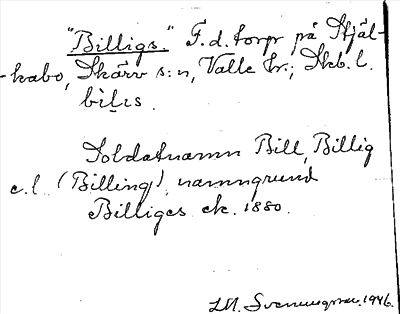 "Billigs." F. d. torp på Stjäl-
-kabo, Skärv s:n, Valle hr.; Skb. l.
bìlis.
Soldatnamn Bill, Billig
e. l. (Billing), namngrund
Billiges ek. 1880.
1946.